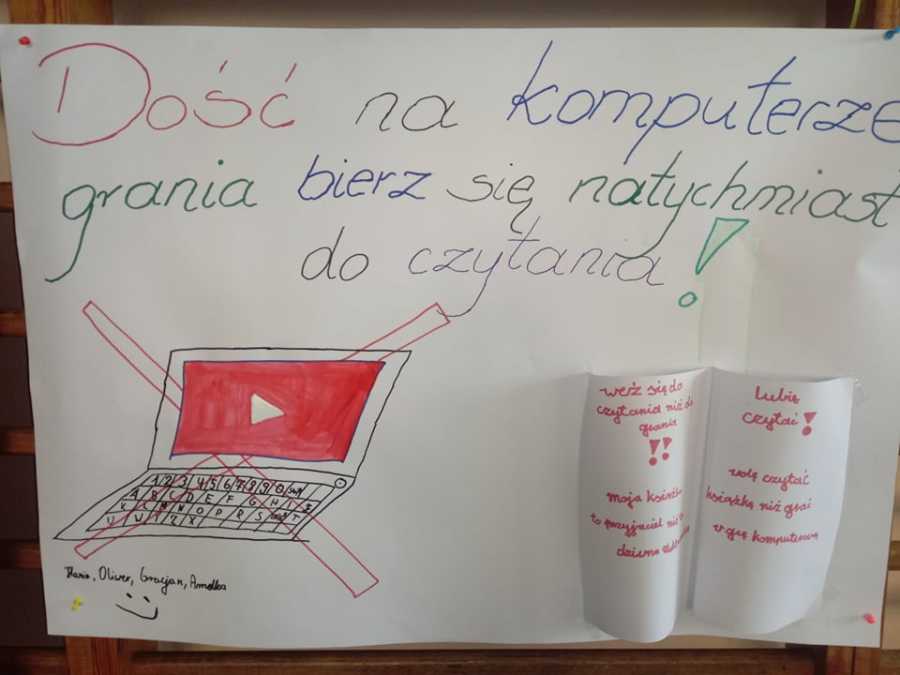 Dość na komputerze
grania bierz się natychmiast
do czytania!
weź się do
czytania niż do
grania
!!
moja książka
to przyjaciel nie
lubię
czytać!
wolę czytać
książkę niż grać
w grę komputerową
1 2 3 4 5 6 7 8 9 0
A B C D E F G H
Oliver, Gracjan, Amelka